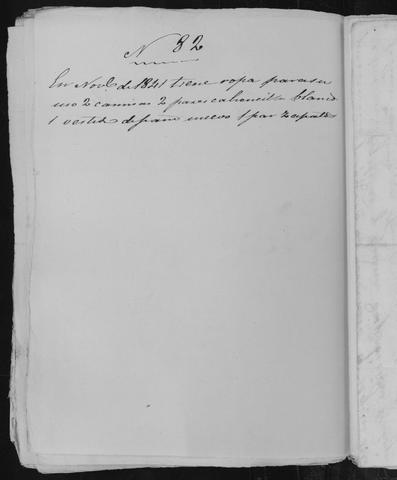 N 82
En Novᵉ de 1841 tiene ropa para su
uso 2 camisas 2 pares calsoncillos blanco
1 vestido de paño nuevo 1 par zapatos